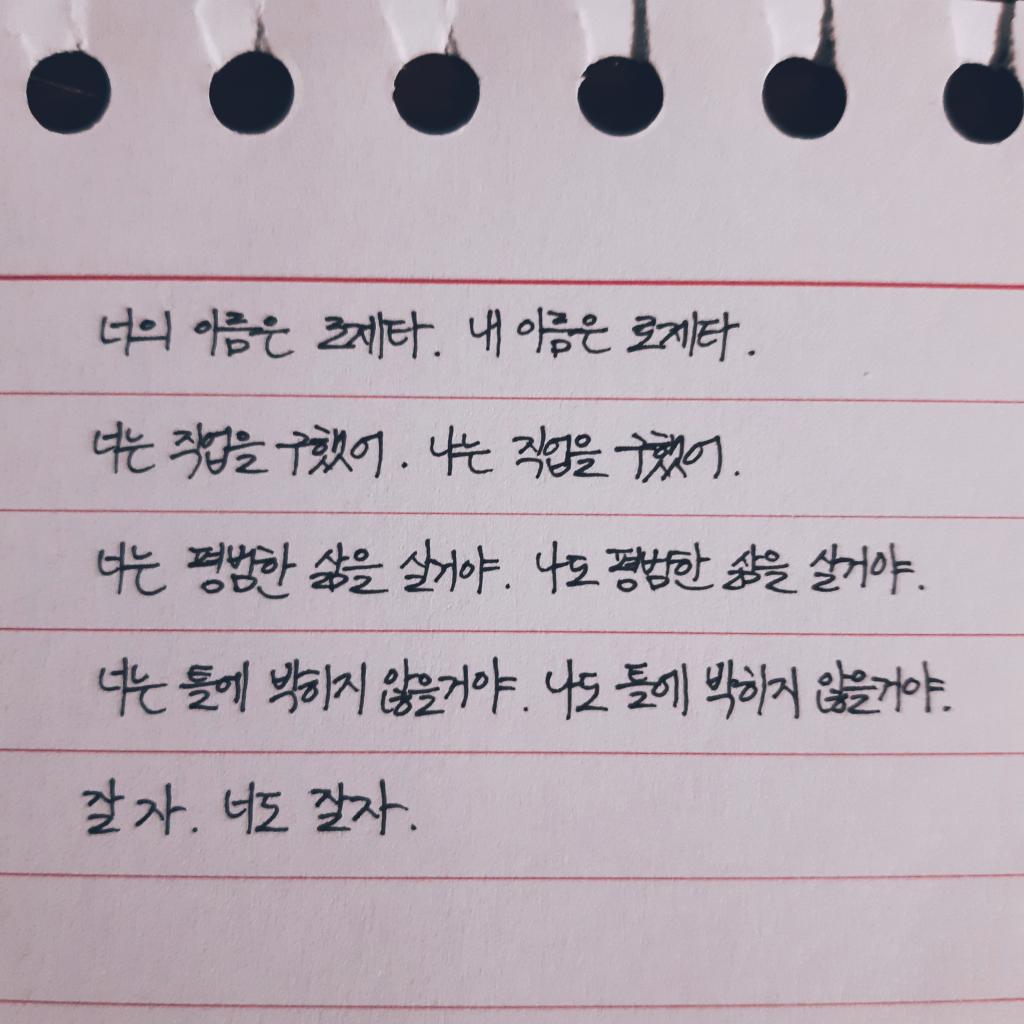 너의 이름은 로제타. 내 이름은 로제타.
너는 직업을 구했어. 나는 직업을 구했어.
너는 평범한 삶을 살거야. 나도 평범한 삶을 살거야.
너는 틀에 박히지 않을거야. 나도 틀에 박히지 않을거야.
잘 자. 너도 잘자.